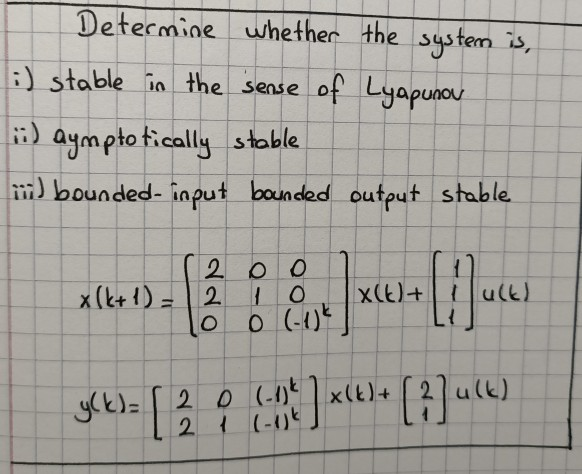 Determine whether the system is,
i) stable in the sense of Lyapunov
ii) aymptotically stable
iii) bounded-input bounded output stable
x(k+1) = [2 0 0; 2 1 0; 0 0 (-1)^k] x(k) + [1; 1; 1] u(k)
y(k) = [2 0 (-1)^k; 2 1 (-1)^k] x(k) + [2; 1] u(k)